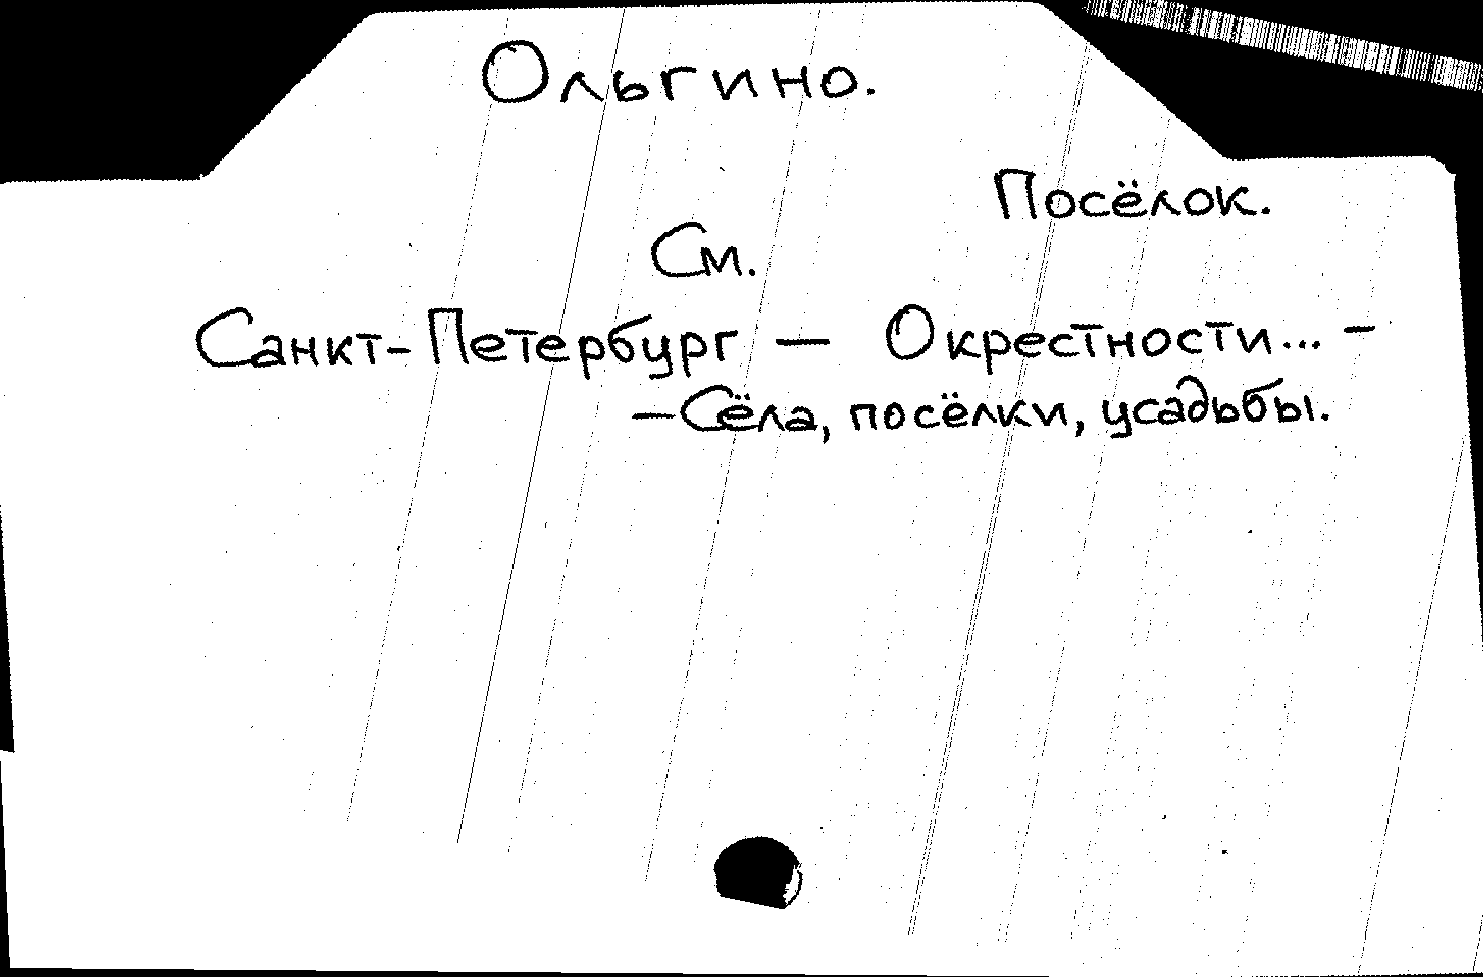 Ольгино.
Посёлок.
См.
Санкт-Петербург — Окрестности... -
— Сёла, посёлки, усадьбы.